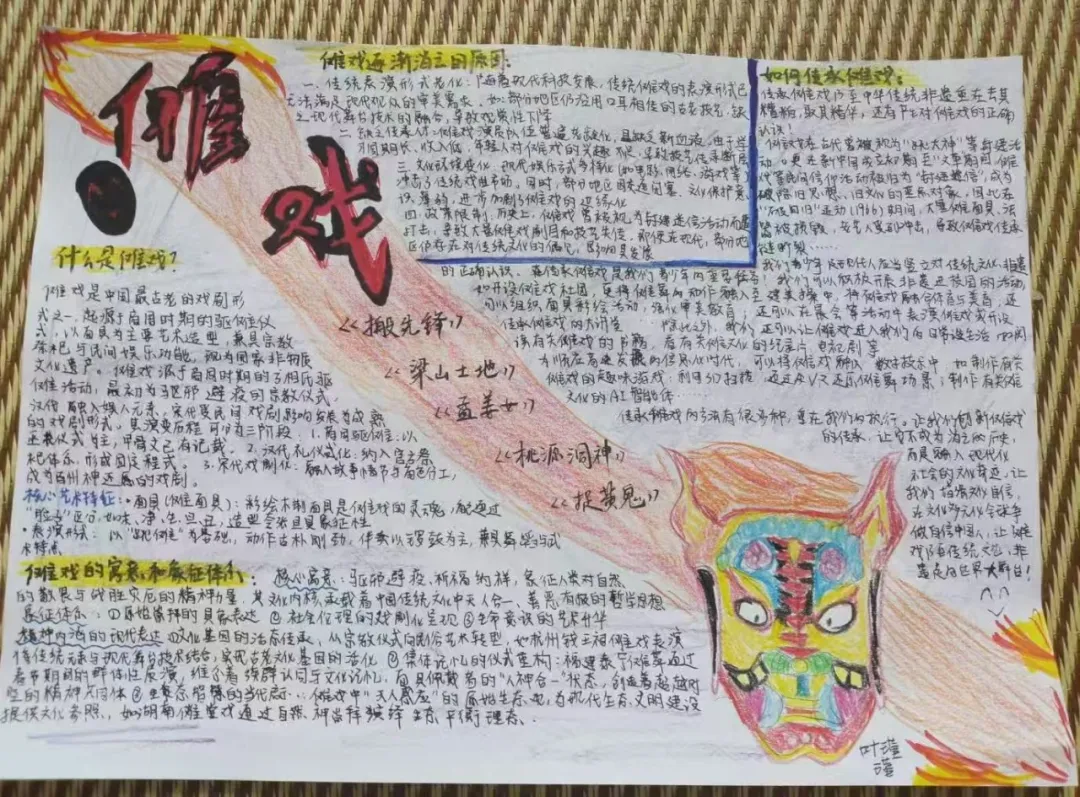 傩戏
什么是傩戏？
傩戏是中国最古老的戏剧形
式之一，起源于商周时期的驱傩仪
式，以面具为主要艺术造型，兼具宗教
祭祀与民间娱乐功能，现为国家非物质
文化遗产。傩戏源于商周时期的方相氏驱
傩活动，最初为驱邪避疫的宗教仪式，
汉代融入娱人元素，宋代受民间戏剧影响发展为成熟
的戏剧形式。其演变历程可分为三阶段：1.商周驱傩：以
巫术仪式为主，甲骨文已有记载。2.汉代礼仪式化：纳入宫廷祭
祀体系，形成固定程式。3.宋代戏剧化：融入故事情节与角色分工，
成为酬神还愿的戏剧。
核心艺术特征：·面具（傩面具）：彩绘木制面具是傩戏的灵魂，通过
"脸子"区分，如末、净、生、旦、丑，造型夸张且具象征性
·表演形式：以"跳傩"为基础，动作古朴刚劲，伴奏以锣鼓为主，兼具舞蹈与武
术特点
傩戏的寓意和象征体系：核心寓意：驱邪避疫、祈福纳祥，象征人类对自然
的敬畏与战胜灾厄的精神力量，其文化内核承载着中国传统文化中天人合一、善恶有报的哲学思想
象征体系：①原始崇拜的具象表达 ②社会伦理的戏剧化呈现 ③生命意识的艺术升华
精神内涵的现代表达 ①文化基因的活态传承，从宗教仪式向民俗艺术转型，如
傩传统元素与现代舞台技术结合，实现古老文化基因的活化 ②集体记忆的仪式重构：福建泰宁傩舞通过
春节期间的群体性展演，维系着族群认同与文化记忆，面具佩戴者的"人神合一"状态，创造着超越时
空的精神共同体 ③生态智慧的当代启示：傩戏中"天人感应"的原始生态观，为现代生态文明建设
提供文化参照，如湖南傩堂戏通过自然神崇拜演绎生态平衡理念。
傩戏逐渐消亡的原因：
一、传统表演形式老化：随着现代科技发展，传统傩戏的表演形式已
无法满足现代观众的审美需求，如：部分地区仍沿用口耳相传的古老技艺，缺
乏现代舞台技术的融合，导致观赏性下降
二、缺乏传承人：傩戏演员队伍普遍老龄化，且缺乏新血液。由于学
习周期长、收入低，年轻人对傩戏的兴趣不足，导致技艺传承断层
三、文化环境变化：现代娱乐方式多样化（如电影、网络、游戏等）
冲击了传统戏曲市场，同时，部分地区因交通闭塞、文化保护意
识薄弱，进一步加剧了傩戏的边缘化
四、政策限制：历史上，傩戏曾被视为封建迷信活动而遭
打击，导致大量傩戏剧目和技艺失传，即使在现代，部分地
区仍存在对传统文化的偏见，影响其发展
《搬先锋》
《梁山土地》
《孟姜女》
《桃源洞神》
《捉黄鬼》
如何传承傩戏：
传承傩戏乃至中华传统非遗重在去其
糟粕，取其精华，还有产生对傩戏的正确
认识！
傩戏在古代曾被称为"跳大神"等封建活
动。更在新中国成立初期至"文革"期间，傩
戏等民间信仰活动被归为"封建迷信"，成为
破除旧思想、旧文化的重点对象，因此在
"破四旧"运动（1966）期间，大量傩面具、法
器被损毁，艺人受到冲击，导致傩戏传承
链断裂……
我们青少年及现代人应当坚定对传统文化、非遗
的正确认识。而传承傩戏是我们青少年的重要任务！我们可以积极开展非遗进校园的活动，
如开设傩戏社团，更将傩舞的动作融入至健美操中，将傩戏融合体育与美育，还
可以组织面具彩绘活动，强化审美教育；还可以在晨会等活动中表演傩戏或开设
传承傩戏的大讲堂……除此之外，我们还可以让傩戏进入我们的日常生活，如阅
读有关傩戏的书籍，看有关傩文化的纪录片、电视剧等
傩戏的趣味游戏；利用3D扫描
文化的AI智能体
传承傩戏的方法有很多种，重在我们的执行。让我们创新傩戏
的传承，让它不成为消亡的历史，
而是融入现代化
社会的文化舞蹈，让
我们拾满文化自信，
在文化多元化会议争
做自信中国人，让傩
戏传统文化、非
遗走向世界大舞台！
叶瑾
瑾